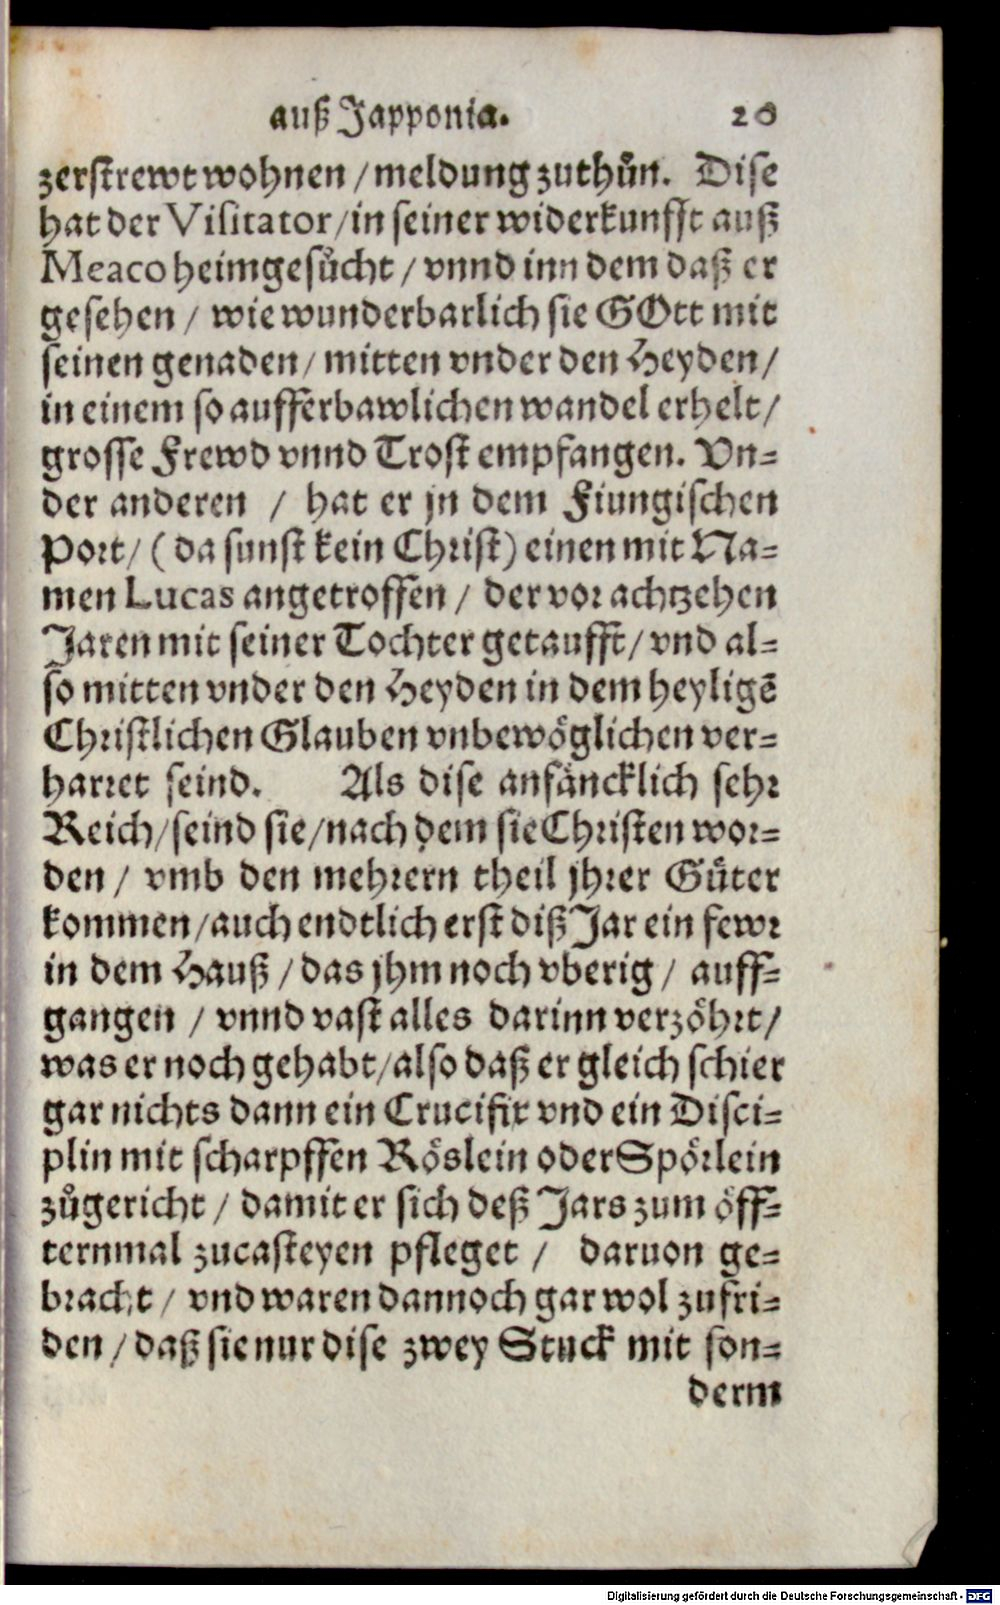 auß Japponia. 20
zerstrewt wohnen / meldung zuthůn. Dise
hat der Visitator / in seiner widerkunfft auß
Meaco heimgesůcht / vnnd inn dem daß er
gesehen / wie wunderbarlich sie GOtt mit
seinen genaden / mitten vnder den Heyden /
in einem so aufferbawlichen wandel erhelt /
grosse Frewd vnnd Trost empfangen. Vn=
der anderen / hat er jn dem Fiungischen
Port / ( da sunst kein Christ) einen mit Na=
men Lucas angetroffen / der vor achtzehen
Jaren mit seiner Tochter getaufft / vnd al=
so mitten vnder den Heyden in dem heyligē
Christlichen Glauben vnbewöglichen ver=
harret seind. Als dise anfäncklich sehr
Reich / seind sie / nach dem sie Christen wor=
den / vmb den mehrern theil jhrer Güter
kommen / auch endtlich erst diß Jar ein fewr
in dem Hauß / das jhm noch vberig / auff=
gangen / vnnd vast alles darinn verzöhrt /
was er noch gehabt / also daß er gleich schier
gar nichts dann ein Crucifix vnd ein Disci=
plin mit scharpffen Röslein oder Spörlein
zůgericht / damit er sich deß Jars zum öff=
ternmal zucasteyen pfleget / daruon ge=
bracht / vnd waren dannoch gar wol zufri=
den / daß sie nur dise zwey Stuck mit son=
derm
Digitalisierung gefördert durch die Deutsche Forschungsgemeinschaft - DFG